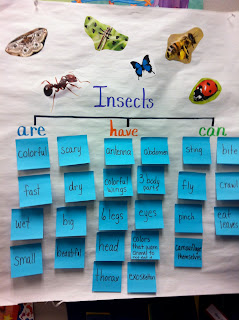 Insects
are have can
colorful scary antenna abdomen sting bite
fast dry colorful wings 3 body parts fly crawl
wet big 6 legs eyes pinch eat leaves
small beautiful head colors that warn camouflage themselves
thorax exoskeleton